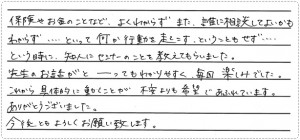 保険やお金のことなど、よくわからず また、誰に相談してよいかも
わからず…… といって 何か行動を起こす、ということもせず……
という時に、知人にセミナーのことを教えてもらいました。
先生のお話がと──ってもわかりやすく、毎回 楽しみでした。
これから具体的に動くことが 不安よりも希望にあふれています。
ありがとうございました。
今後ともよろしくお願い致します。